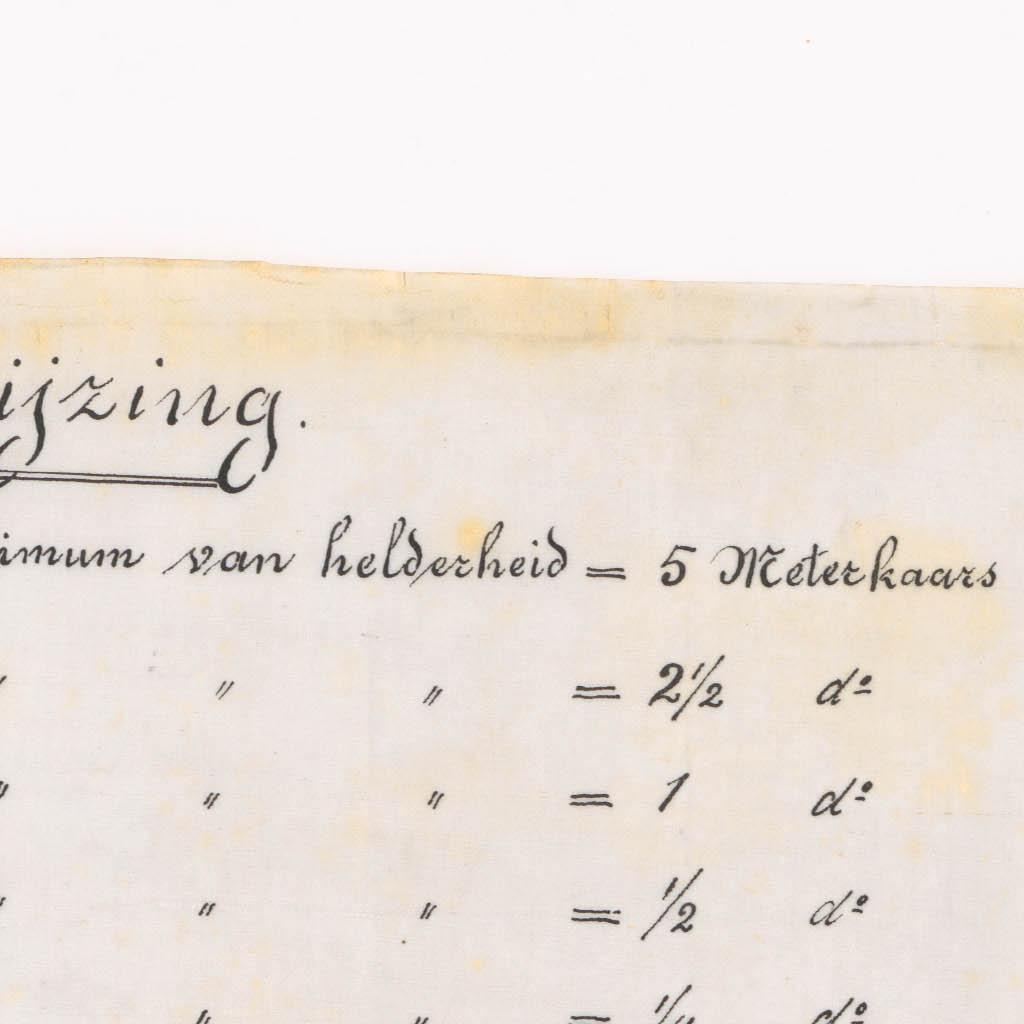 ijzing.
imum van helderheid = 5 Meterkaars
" " " = 2 1/2 dº
" " " = 1 dº
" " " = 1/2 dº
" " = dº